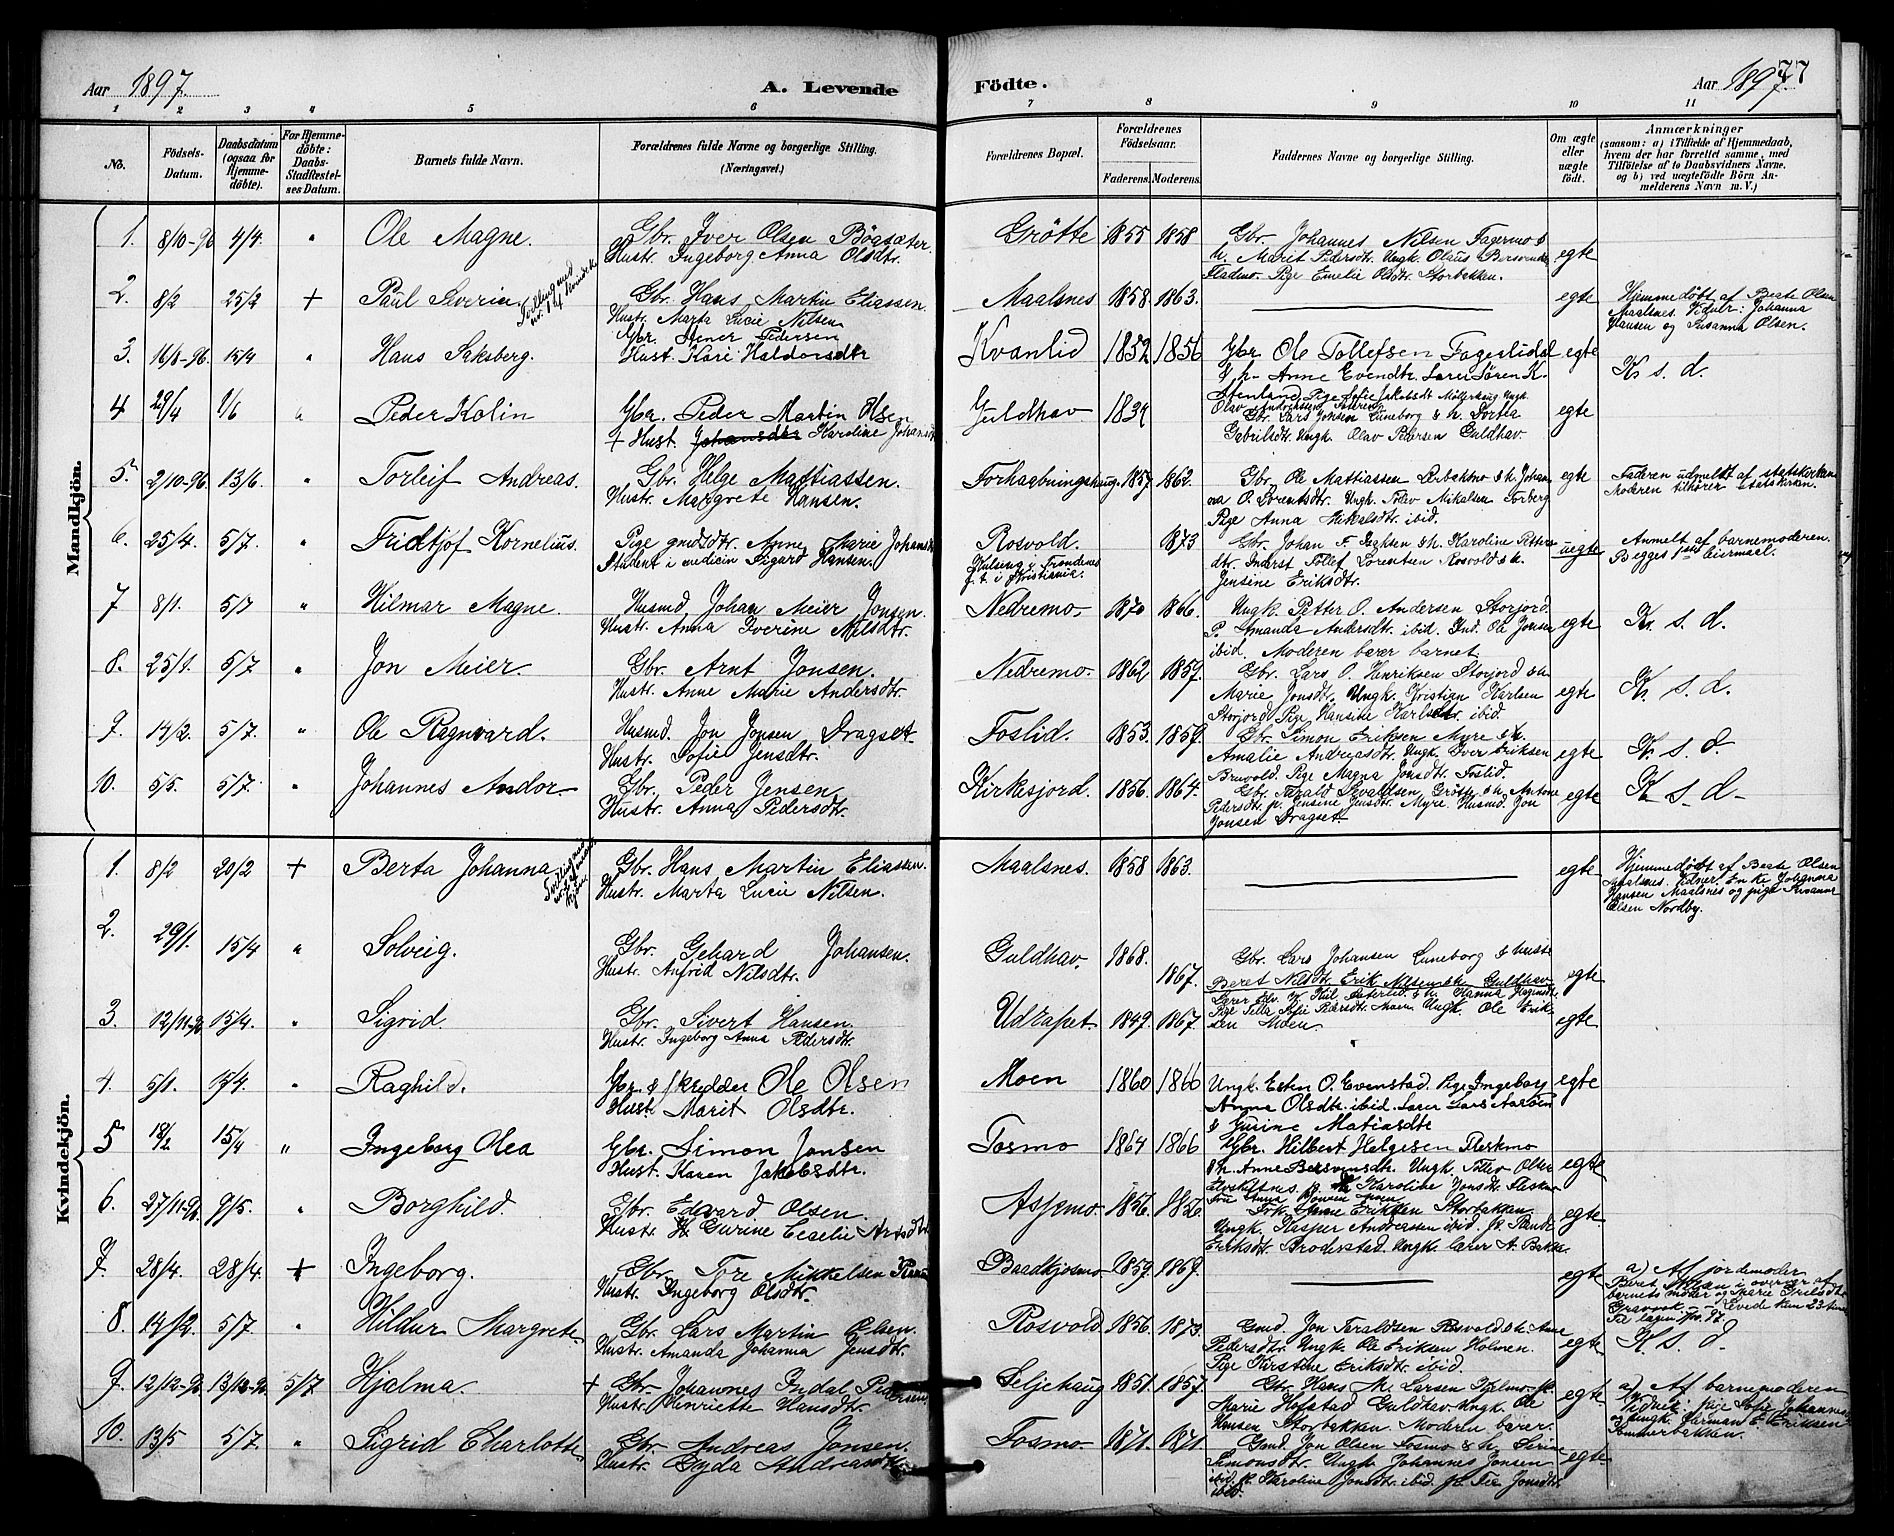 Aar 1897. A. Levende
Födte. Aar 1897. 77
1 2 3 4 5 6 7 8 9 10 11
No.
Födsels-Datum.
Daabsdatum (ogsaa for Hjemmedöbte).
For Hjemmedöbte: Daabs-Stadfæstelses Datum.
Barnets fulde Navn.
Forældrenes fulde Navne og borgerlige Stilling.
(Næringsvei.)
Forældrenes Bopæl.
Forældrenes Födselsaar.
Faderens. Moderens.
Faddernes Navne og borgerlige Stilling.
Om ægte eller uægte født.
Anmærkninger
(saasom: a) i Tilfælde af Hjemmedaab, hvem der har forrettet samme, med Tilföielse af to Daabsvidners Navne. og b) ved uægtefödte Börn Anmelderens Navn m. V.)
Mandkjön.
1. 8/10-96 4/4. " Ole Magne. Gbr. Iver Olsen Bögsæter Grötte 1855 1858 Gbr. Johannes Nilsen Fagermo &
Hustr. Ingeborg Anna Olsdtr. h. Marit Pedersdtr. Ungk. Olaus egte
Pige Emelie Olsdtr. Storbakken.
2. 8/2 25/2 + Paul Severin. Gbr. Hans Martin Eliassen. Maalsnes 1858 1863. egte Hjemmedöbt af Beate Olsen
Hustr. Marta Lucie Nilsen Maalsnes. Vidner: Johanna
Hansen og Susanna Olsen.
3. 16/8-96. 15/4 " Hans Saksberg. Gbr. Pedersen Kvanlid 1852 1856 Gbr Ole Tollefsen Fageslidal egte K s. d.
Hust. Kari Haldorsdtr & h. Anne Evendtr. Lærer Sören K.
Stenland Pige Sofie Jakobsdt
4 29/4 1/6 " Peder Kolin Gbr. Peder Martin Olsen Guldhav 1834 Gbr. Lars Jonsen Luneborg & h. Dortea egte
+ Hust. Karoline Johansdt Gabrilsdtr. Ungk. Olav Pedersen Guldhav.
5. 2/10-96. 13/6. " Torleif Andreas. Gbr. Helge Mattiassen. Forhaabningshaug. 1857 1862. Gbr. Ole Mattiassen & h. Johan egte Faderen udmeldt af statskirken
Hustr. Margrete Hansen. na O. Lorentsdtr. Ungk. Tollev Mikalsen Moderen tilhører statskirken.
Pige Anna Mikalsdtr. ibid.
6. 25/4. 5/7. " Fridtjof Kornelius. Pige gmdsdtr. Anne Marie Johansdt Rosvold. 1873 Gbr. Johan F. & h. Karoline Petters uegte Anmelt af barnemoderen.
Student i medicin Sigurd Hansen. dtr. Tollef Lorentsen Rosvold & h. Begges 1ste leiermaal.
f. t. i Kristiania. Jensine Eriksdtr.
7 8/1. 5/7 " Hilmar Magne. Husmd. Johan Meier Jonsen. Nedremo. 1870 1866. Ungk. Petter O. Andersen Storjord. egte K. s. d.
Hustr. Anna Iverine Nilsdtr. P. Amanda Andersdtr. ibid. Ind. Ole Jonsen
ibid. Moderen bærer barnet.
8. 25/1. 5/7 " Jon Meier. Gbr. Arnt Jonsen. Nedremo. 1862 1857. Gbr. Lars O. Henriksen Storjord & h. egte K. s. d.
Hustr. Anne Marie Andersdtr. Marie Jonsdtr. Ungk. Kristian Karlsen
Storjord Pige Hansine Karlsdtr. ibid.
9. 14/2. 5/7. " Ole Ragnvard. Husmd. Jon Jonsen Dragset Foslid. 1853. 1859. Gbr. Simon Eriksen Myre & h. egte K. s. d.
Hustr. Sofie Jensdtr. Amalie Andreasdtr. Ungk. Iver Eriksen
Bruvold. Pige Magna Jonsdtr. Foslid.
10. 5/5. 5/7. " Johannes Andor Gbr. Peder Jensen Kirkesjord. 1856. 1864. Gbr. Grötte & h. Antone egte K s. d.
Hustr. Anna Pedersdtr. Pedersdtr. p. Jensine Jensdtr. Myre. Husmd. Jon
Jonsen Dragset.
Kvindekjön.
1. 8/2 20/2 + Berta Johanna Gbr. Hans Martin Eliassen. Maalsnes. 1858 1863. egte Hjemmedöbt af Beate Olsen
Hustr. Marta Lucie Nilsen. Maalsnes. Vidner Enke Johanna
Hansen Maalsnes og pige Susanna
Olsen Nordby.
2. 29/1. 15/4 " Solveig. Gbr. Gehard Johansen. Guldhav. 1868. 1867. Gbr. Lars Johansen Luneborg & hustr. egte
Hustr. Anfrid Nilsdtr. Beret Nilsdtr. Erik Nilsen & h. Guldhav
3. 12/11-96 15/4. " Sigrid. Gbr. Sivert Hansen. Udrapet 1849. 1867. Lærer & h. Hanna egte
Hustr. Ingeborg Anna Pedersdtr. Pige Sofie Moen Ungk. Ole Erik-
sen Moen.
4. 5/1. 15/4. " Raghild. Gbr. & skredder Ole Olsen Moen 1860 1866 Ungk. Esten O. Evenstad. Pige Ingeborg egte
Hust. Marit Olsdtr. Anna Olsdtr. ibid. Lærer Lars Aaröen
& Gurine Matiasdtr
5 18/2 15/4 " Ingeborg Olea Gbr. Simon Jonsen Fosmo 1864 1866 Gbr. Hilbert Helgesen Fleskmo egte
Hust. Karen Jakobsdtr. & h. Anne Bersvensdtr. Ungk. Tollev Olsen
Karoline Jonsdt.
6. 27/11-96. 9/5. " Borghild. Gbr. Edevard Olsen. Aspemo 1856. 1856. Frk. Anne Eriksen Storbakken. egte
Hustr. Gurine Ceselie Arnsdtr Ungk. Kasper Andreasen ibid.
Eriksdtr. Brodersstad. Ungk. lærer A. Bakke.
7. 28/4. 28/4. + Ingeborg. Gbr. Tore Mikkelsen Baadkjosmo 1859. 1869. egte a) Af jordemoder
Hustr. Ingeborg Olsdtr. Beret Olsen i overvær af
barnets moder og Marie
Levede kun 23 timer
8. 14/12. 5/7. " Hildur Margrete Gbr. Lars Martin Olsen. Rosvold 1856. 1873. Gmd. Jon Taraldsen Rosvold & h. Anne egte K s. d.
Hustr. Amanda Johanna Jensdtr. Pedersdtr. Ungk. Ole Eriksen Holmen.
Pige Kirstine Eriksdtr. ibid.
9. 12/12-96 13/12-96 5/7 Hjalma. + Gbr. Johannes Indal Pedersen Seljehaug 1851. 1857. Gbr. Hans M. Larsen egte a) Af barnemoderen
Hustr. Henriette Hansdtr. Marie Hofstad Guldhav. Ungk. Ole Vidner: pige Sofie Johannesdt
Hansen Storbakken. Moderen bærer. og Ungk. Herman E. Eriksen
10. 13/5 5/7. " Sigrid Charlotte Gbr. Andreas Jonsen. Fosmo 1871. 1871. Gmd. Jon Olsen Fosmo & h. Serine egte
Hustr. Gyda Andreasdtr. Simonsdtr. Ungk. Johannes Jonsen
ibid. p. Karoline Jonsdtr. ibid. p. Jonsdtr.
ibid.